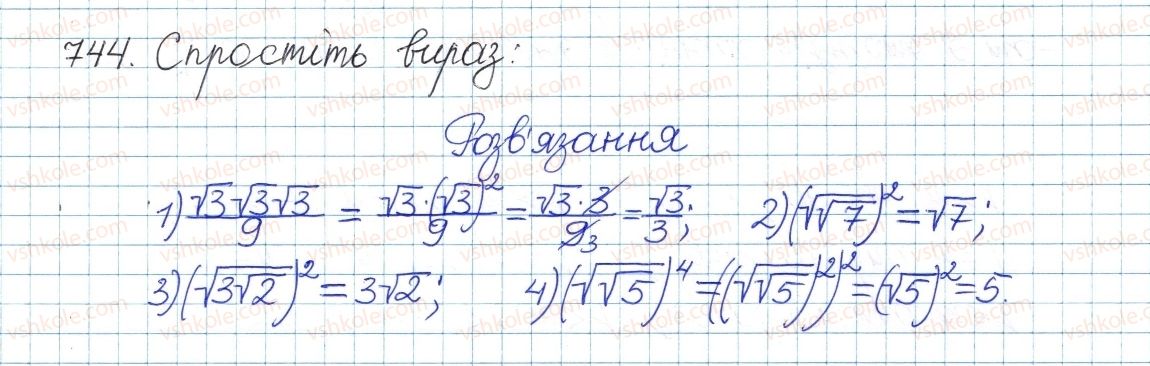 744. Спростіть вираз:
Розв'язання
1) √3√3√3/9 = √3·(√3)²/9 = √3·3/9 3 = √3/3; 2) (√√7)² = √7;
3) (√3√2)² = 3√2; 4) (√√5)⁴ = ((√√5)²)² = (√5)² = 5.